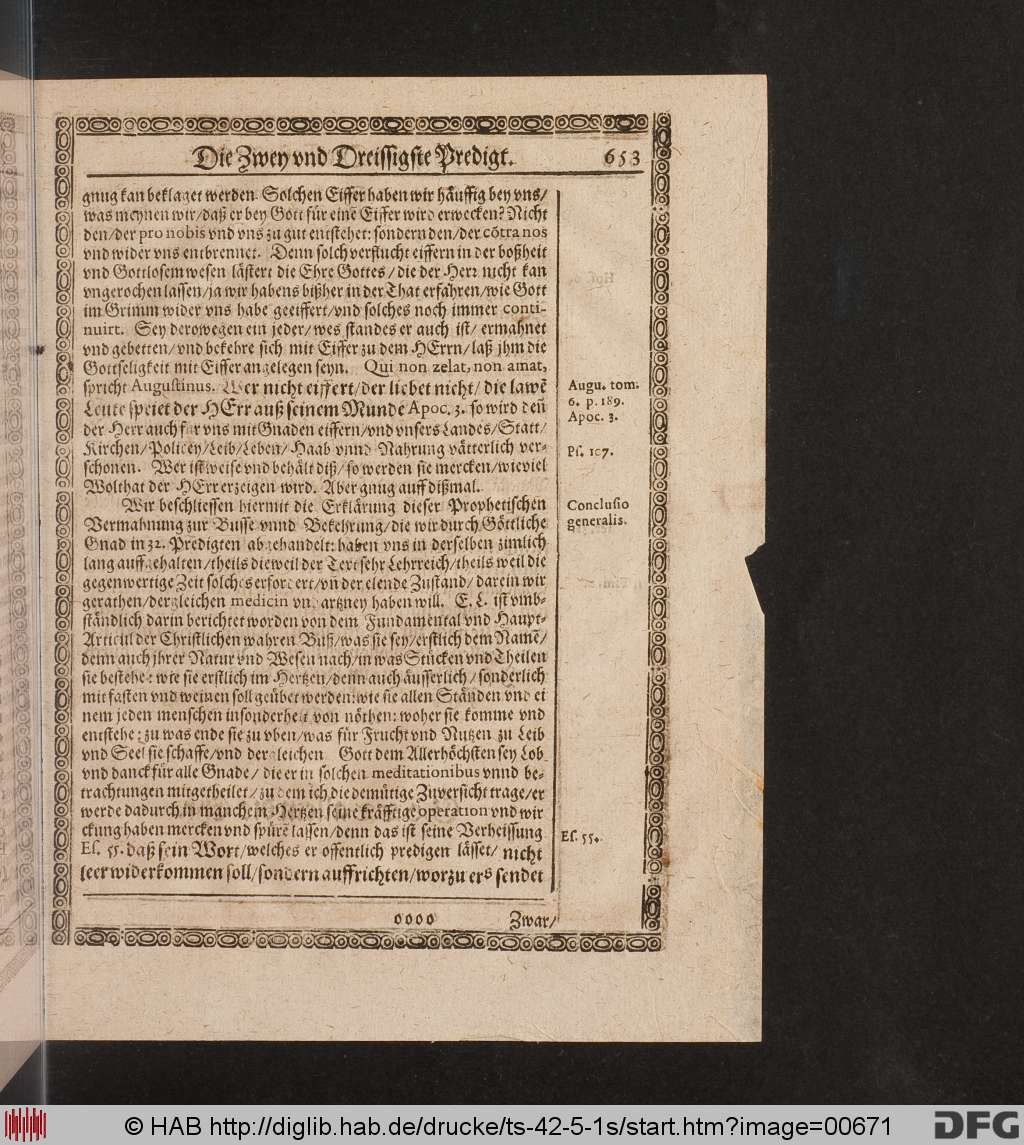 Die Zwey vnd Dreissigste Predigt. 653
gnug kan beklaget werden. Solchen Eiffer haben wir häuffig bey vns/
was meynen wir/ daß er bey Gott für einē Eiffer wird erwecken? Nicht
den/ der pro nobis vnd vns zu gut entstehet: sondern den/ der cōtra nos
vnd wider vns entbrennet. Denn solch verflucht eiffern in der boßheit
vnd Gottlosem wesen lästert die Ehre Gottes/ die der Herr nicht kan
vngerochen lassen/ ja wir habens bißher in der That erfahren/ wie Gott
im Grimm wider vns habe geeiffert/ vnd solches noch immer conti-
nuirt. Sey derowegen ein jeder/ wes standes er auch ist/ ermahnet
vnd gebetten/ vnd bekehre sich mit Eiffer zu dem HErrn/ laß jhm die
Gottseligkeit mit Eiffer angelegen seyn. Qui non zelat, non amat,
spricht Augustinus. Wer nicht eiffert/ der liebet nicht/ die lawē
Leute speiet der HErr auß seinem Munde Apoc. 3. so wird deñ
der Herr auch für vns mit Gnaden eiffern/ vnd vnsers Landes/ Statt/
Kirchen/ Policey/ Leib/ Leben/ Haab vnnd Nahrung vätterlich ver-
schonen. Wer ist weise vnd behält diß/ so werden sie mercken/ wieviel
Wolthat der HErr erzeigen wird. Aber gnug auff dißmal.
Wir beschliessen hiermit die Erklärung dieser Prophetischen
Vermahnung zur Busse vnnd Bekehrung/ die wir durch Göttliche
Gnad in 32. Predigten abgehandelt: haben vns in derselben zimlich
lang auffgehalten/ theils dieweil der Text sehr Lehrreich/ theils weil die
gegenwertige Zeit solches erfordert/ vñ der elende Zustand/ darein wir
gerathen/ dergleichen medicin vnd artzney haben will. E. L. ist vmb-
ständlich darin berichtet worden von dem Fundamental vnd Haupt-
Articul der Christlichen wahren Buß/ was sie sey/ erstlich dem Namē/
denn auch jhrer Natur vnd Wesen nach/ in was Stücken vnd Theilen
sie bestehe: wie sie erstlich im Hertzen/ denn auch äusserlich/ sonderlich
mit fasten vnd weinen soll geübet werden: wie sie allen Ständen vnd ei
nem jeden menschen insonderheit von nöthen: woher sie komme vnd
entstehe: zu was ende sie zu vben/ was für Frucht vnd Nutzen zu Leib
vnd Seel sie schaffe/ vnd dergleichen Gott dem Allerhöchsten sey Lob
vnd danck für alle Gnade/ die er in solchen meditationibus vnnd be-
trachtungen mitgetheilet/ zu dem ich die demütige Zuversicht trage/ er
werde dadurch in manchem Hertzen seine kräfftige operation vnd wir
ckung haben mercken vnd spürē lassen/ denn das ist seine Verheissung
Es. 55. daß sein Wort/ welches er offentlich predigen lässet/ nicht
leer widerkommen soll/ sondern auffrichten/ worzu ers sendet
Oooo Zwar/
Augu. tom.
6. p. 189.
Apoc. 3.
Ps. 107.
Conclusio
generalis.
Es. 55.
© HAB http://diglib.hab.de/drucke/ts-42-5-1s/start.htm?image=00671
DFG